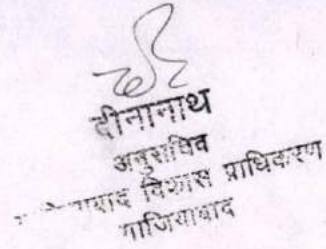 दीनानाथ
अनुसचिव
विकास प्राधिकरण
गाजियाबाद